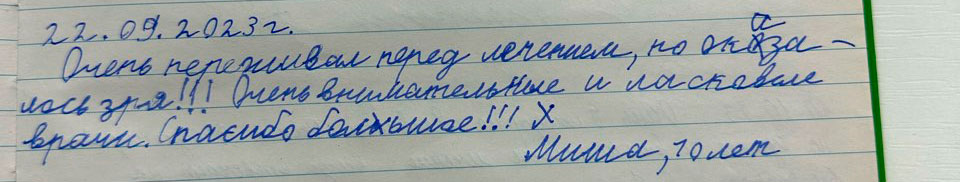 22.09.2023г.
Очень переживал перед лечением, но оказа-
лось зря!!! Очень внимательные и ласковые
врачи. Спасибо большое!!! X
Миша, 10 лет